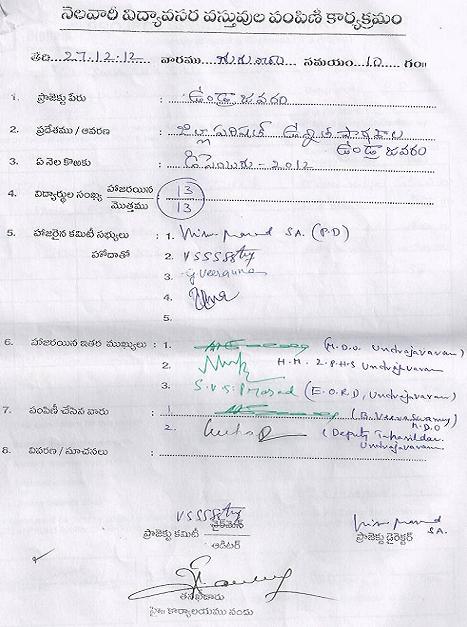 నెలవారీ విద్యావసర వస్తువుల పంపిణి కార్యక్రమం
తేది 27.12.12 వారము గురువారం సమయం 10 గం॥
1. ప్రాజెక్టు పేరు : ఉండ్రాజవరం
2. ప్రదేశము / ఆవరణ : జిల్లా పరిషత్ ఉన్నత పాఠశాల
ఉండ్రాజవరం
3. ఏ నెల కొఱకు : డిసెంబరు - 2012
4. విద్యార్థుల సంఖ్య హాజరయిన : 13
మొత్తము 13
5. హాజరైన కమిటీ సభ్యులు : 1. S.A. (P.D)
హోదాతో 2.
3. G Veeranna
4.
5.
6. హాజరయిన ఇతర ముఖ్యులు : 1. (M.D.O. Undrajavaram)
2. H.M. Z.P.H.S Undrajavaram
3. S.V.S. Prasad (E.O.R.D, Undrajavaram)
7. పంపిణీ చేసిన వారు : 1 (B. Veeraswamy)
M.D.O
2. (Deputy Tahasildar
Undrajavaram
8. వివరణ / సూచనలు :
ప్రాజెక్టు కమిటీ చైర్‌మెన్
ఆడిటర్
S.A.
ప్రాజెక్టు డైరెక్టర్
తనిఖీదారు
హై॥ కార్యాలయము నందు